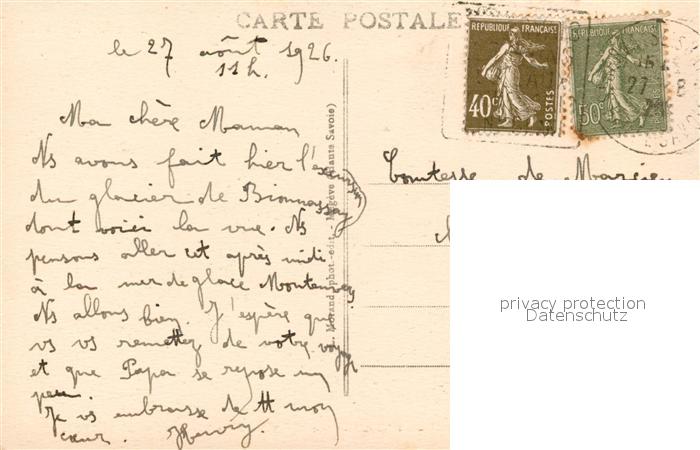 CARTE POSTALE
le 27 août 1926.
11h.
Ma chère Maman
Ns avons fait hier l'excursion
du glacier de Bionnassay
dont voici la vue. Ns
pensons aller cet après midi
à la mer de glace Montenvers
Ns allons bien. J'espère que
vs vs remettez de votre voyage
et que Papa se repose un
peu.
Je vs embrasse de tt mon
cœur. Henry.
Morand, phot.-édit. - Megève (Haute Savoie)
REPUBLIQUE FRANÇAISE
40c
POSTES
REPUBLIQUE FRANÇAISE
50c
27 8
Comtesse de
privacy protection
Datenschutz